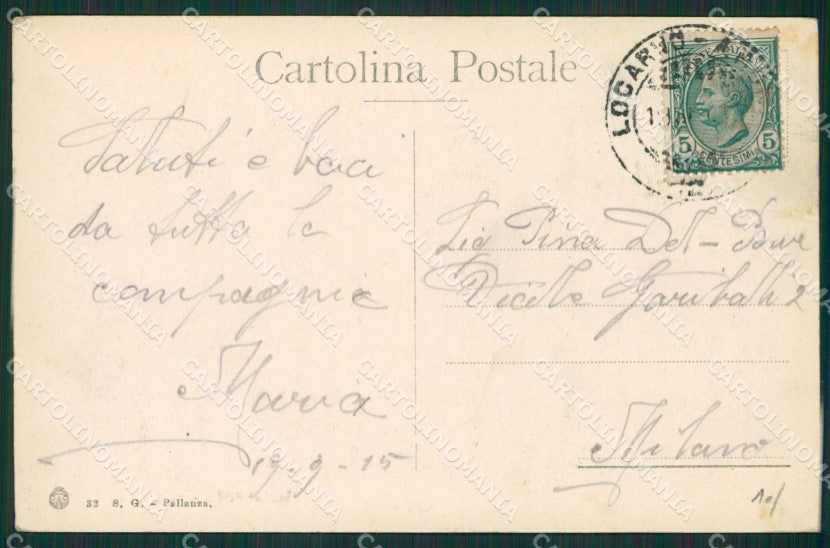 Cartolina Postale
LOCARNO - A
5 CENTESIMI 5
Saluti e baci
da tutta la
compagnia
Maria
19-9-15
Sig Pina Del-
Garibaldi 2
Milano
32 S. G. - Pallanza.
10/
CARTOLINOMANIA